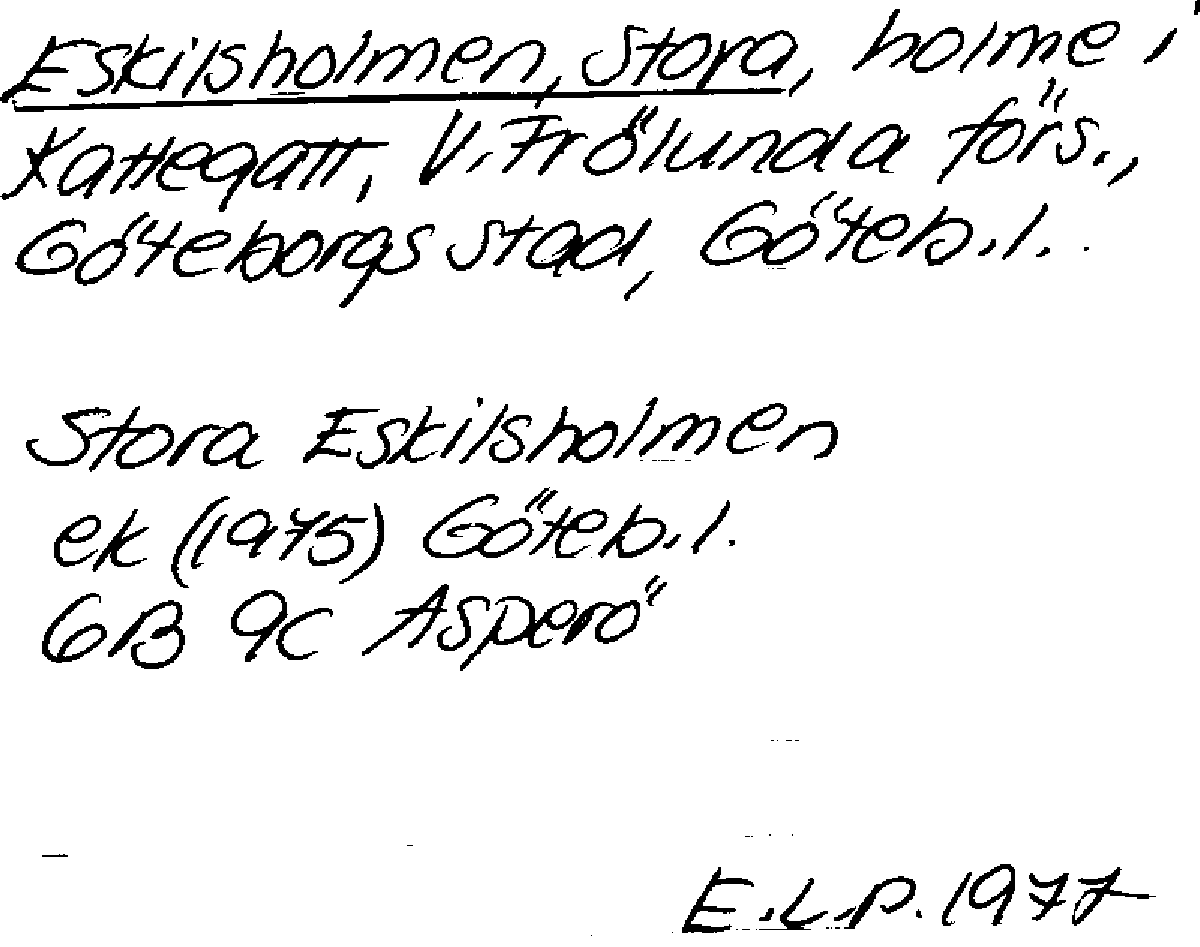 Eskilsholmen, Stora, holme i
Kattegatt, V. Frölunda förs.,
Göteborgs stad, Göteb.l.
Stora Eskilsholmen
ek (1975) Göteb.l.
6B 9c Asperö
E.L.P. 1977